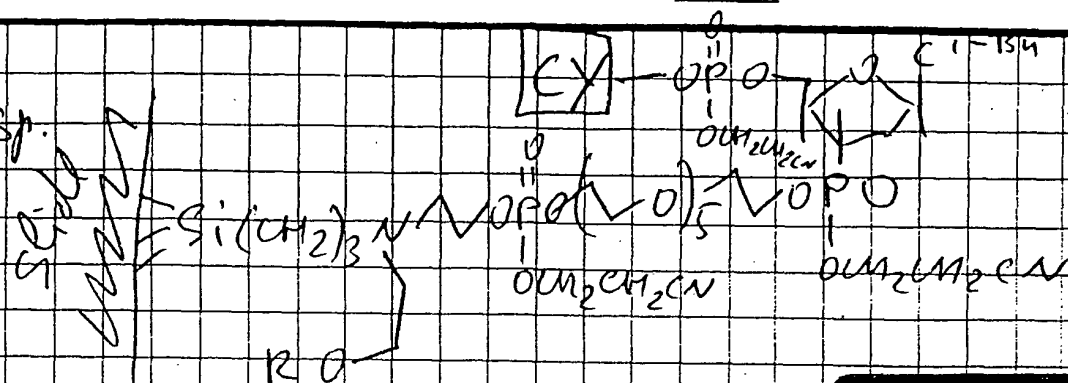 O
CY — O P O — O C i-Bu
OCH2CH2CN
Sp.
Slide
O
Si(CH2)3 N O P O ( O)5 O P O
OCH2CH2CN OCH2CH2CN
R O